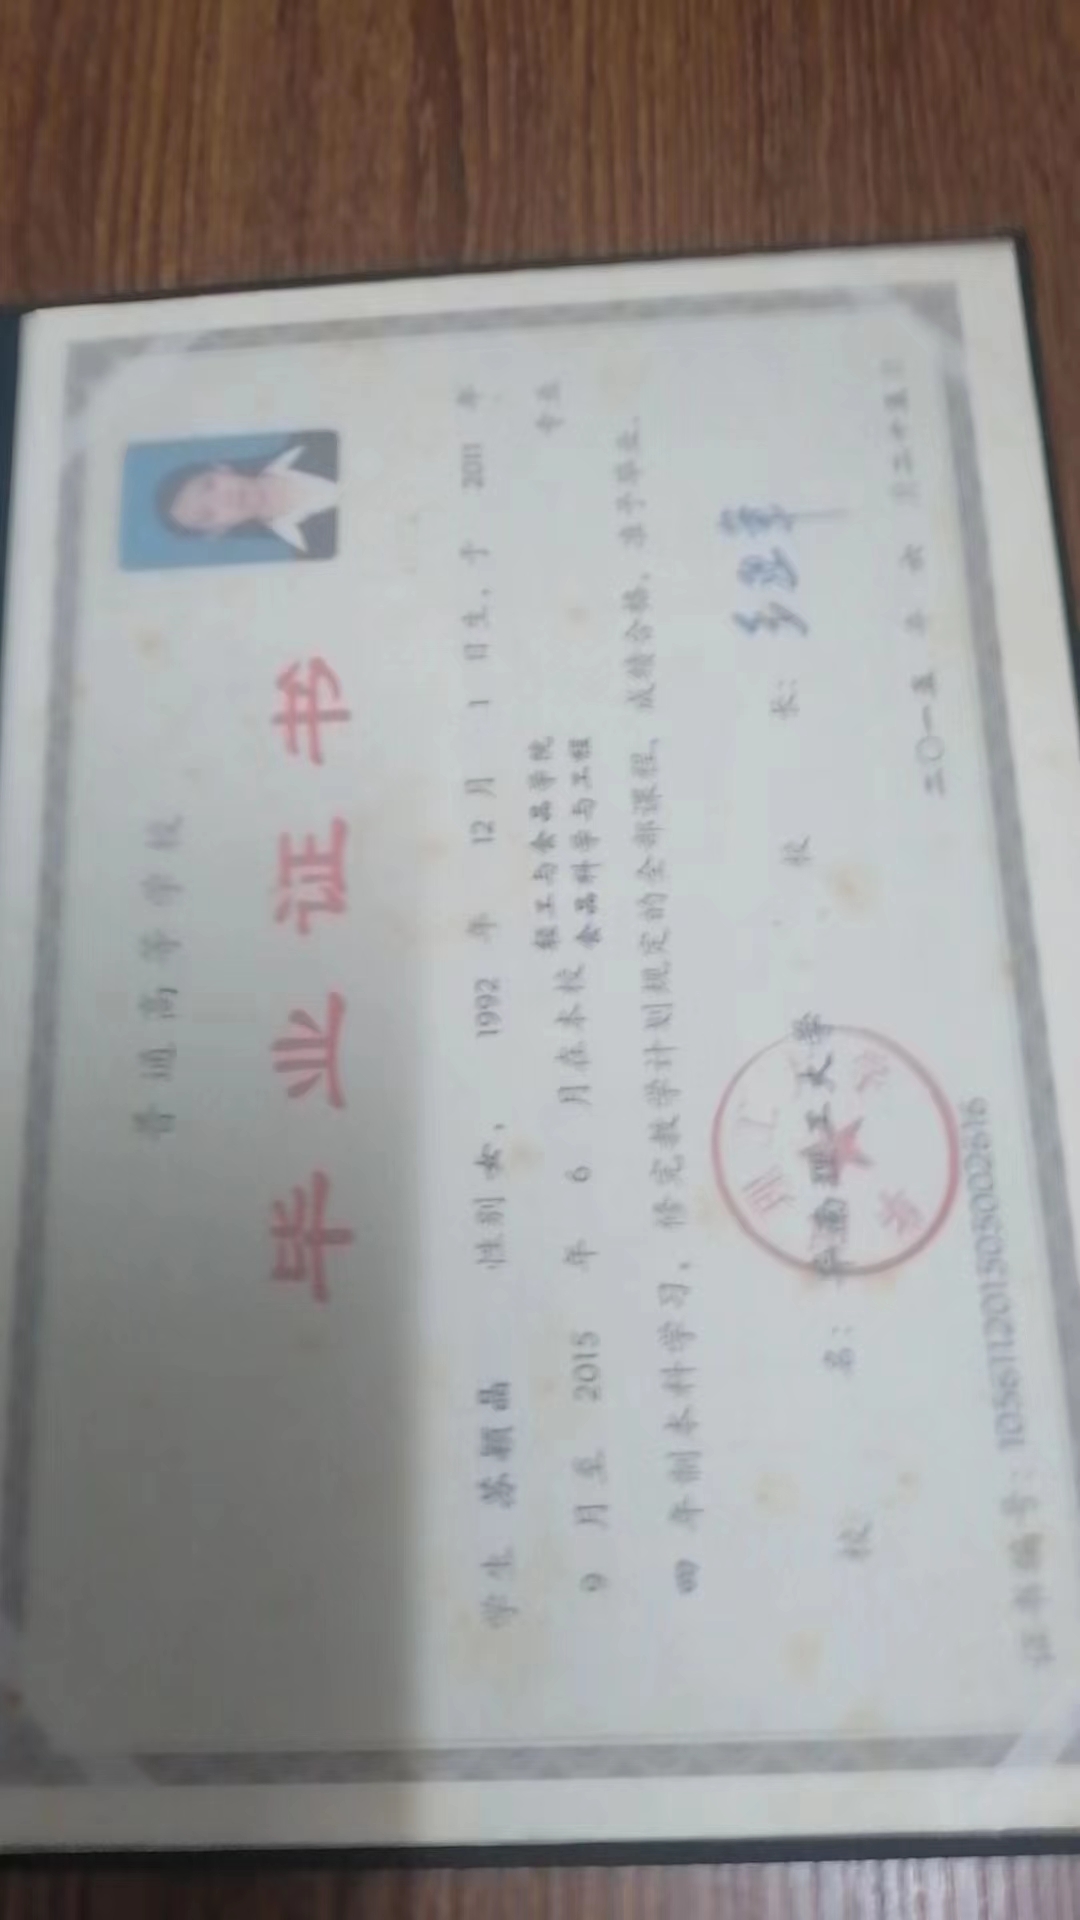 普通高等学校
毕业证书
学生 苏颖晶 性别 女， 1992 年 12 月 1 日生，于 2011 年
9 月至 2015 年 6 月在本校 轻工与食品学院 食品科学与工程 专业
四 年制本科学习，修完教学计划规定的全部课程，成绩合格，准予毕业。
校 名：华南理工大学 校 长：
二〇一五 年 六 月二十五日
证书编号：105611201505002616